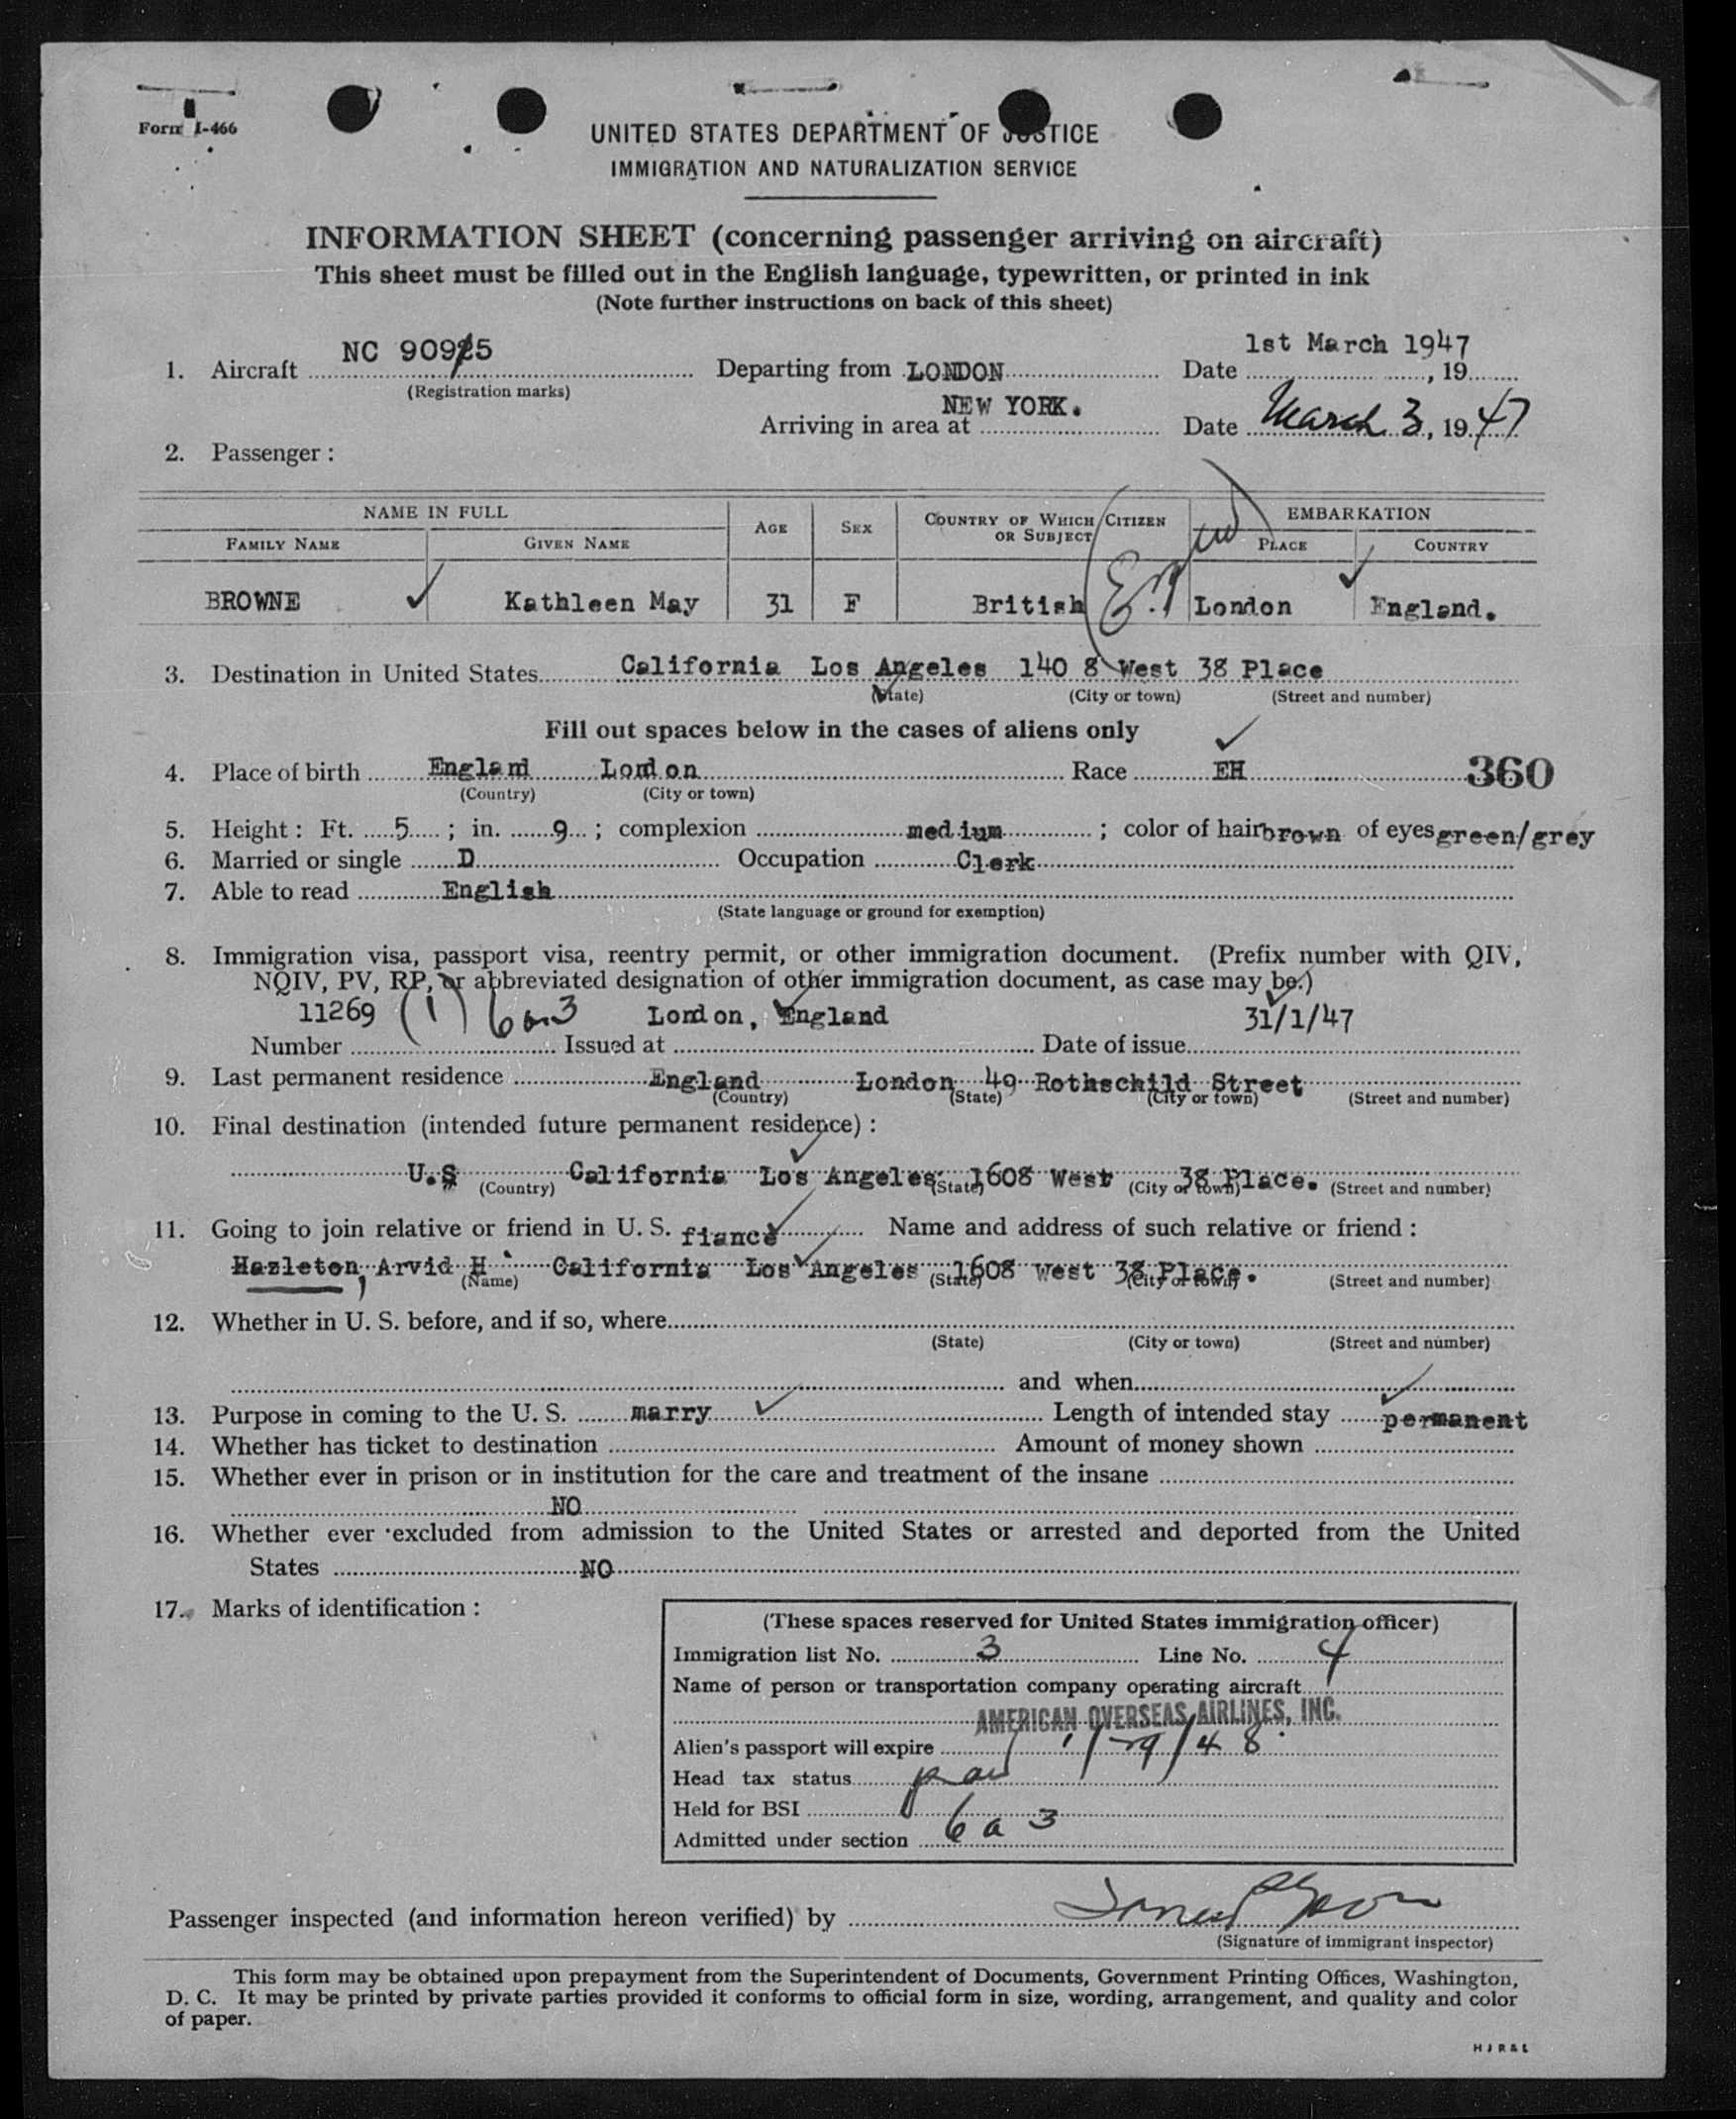 Form I-466
UNITED STATES DEPARTMENT OF JUSTICE
IMMIGRATION AND NATURALIZATION SERVICE
INFORMATION SHEET (concerning passenger arriving on aircraft)
This sheet must be filled out in the English language, typewritten, or printed in ink
(Note further instructions on back of this sheet)
1. Aircraft NC 909 5 Departing from LONDON Date 1st March 1947, 19
(Registration marks)
Arriving in area at NEW YORK. Date March 3, 1947
2. Passenger :
NAME IN FULL AGE SEX COUNTRY OF WHICH CITIZEN OR SUBJECT EMBARKATION
FAMILY NAME GIVEN NAME PLACE COUNTRY
BROWNE Kathleen May 31 F British (Eng) London England.
3. Destination in United States California Los Angeles 140 8 West 38 Place
(State) (City or town) (Street and number)
Fill out spaces below in the cases of aliens only
4. Place of birth England London Race EH 360
(Country) (City or town)
5. Height : Ft. 5 ; in. 9 ; complexion medium ; color of hair brown of eyes green/grey
6. Married or single D Occupation Clerk
7. Able to read English
(State language or ground for exemption)
8. Immigration visa, passport visa, reentry permit, or other immigration document. (Prefix number with QIV,
NQIV, PV, RP, or abbreviated designation of other immigration document, as case may be.)
11269 (1) 6 a 3 London, England 31/1/47
Number Issued at Date of issue
9. Last permanent residence England London 49 Rothschild Street
(Country) (State) (City or town) (Street and number)
10. Final destination (intended future permanent residence) :
U.S California Los Angeles 1608 West 38 Place.
(Country) (State) (City or town) (Street and number)
11. Going to join relative or friend in U. S. fiance Name and address of such relative or friend :
Hazleton, Arvid H California Los Angeles 1608 West 38 Place.
(Name) (State) (City or town) (Street and number)
12. Whether in U. S. before, and if so, where
(State) (City or town) (Street and number)
and when
13. Purpose in coming to the U. S. marry Length of intended stay permanent
14. Whether has ticket to destination Amount of money shown
15. Whether ever in prison or in institution for the care and treatment of the insane
NO
16. Whether ever excluded from admission to the United States or arrested and deported from the United
States NO
17. Marks of identification :
(These spaces reserved for United States immigration officer)
Immigration list No. 3 Line No. 4
Name of person or transportation company operating aircraft
AMERICAN OVERSEAS AIRLINES, INC.
Alien's passport will expire 1/29/48
Head tax status
Held for BSI
Admitted under section 6 a 3
Passenger inspected (and information hereon verified) by
(Signature of immigrant inspector)
This form may be obtained upon prepayment from the Superintendent of Documents, Government Printing Offices, Washington,
D. C. It may be printed by private parties provided it conforms to official form in size, wording, arrangement, and quality and color
of paper.
H J R & L